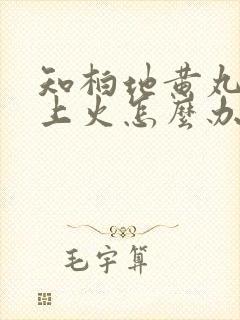 知柏地黄丸
上火怎麽办
毛宇算